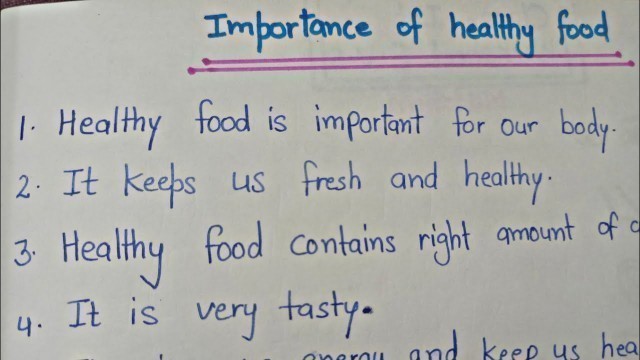 Importance of healthy food
1. Healthy food is important for our body.
2. It keeps us fresh and healthy.
3. Healthy food contains right amount of
4. It is very tasty.
energy and keep us hea